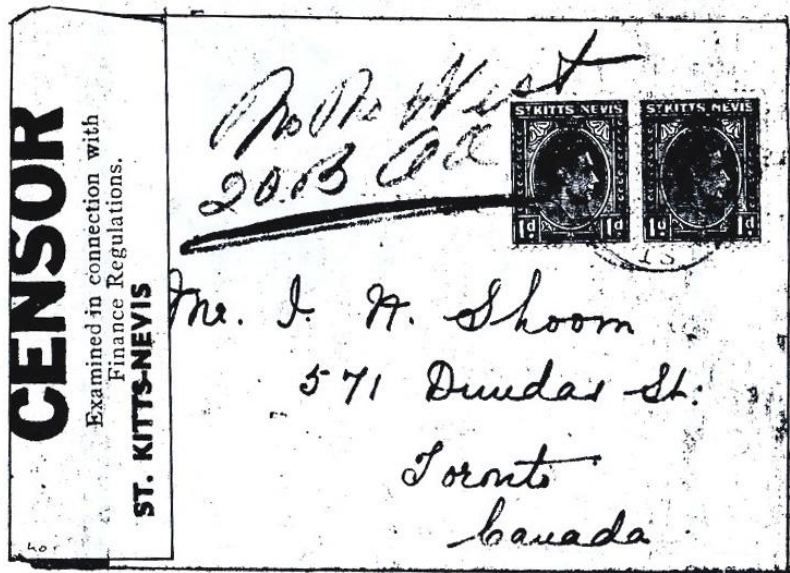 CENSOR
Examined in connection with
Finance Regulations.
ST. KITTS-NEVIS
West
20.B
ST KITTS NEVIS
1d 1d
ST KITTS NEVIS
1d 1d
Mr. I. H. Shoom
571 Dundas St.
Toronto
Canada
40